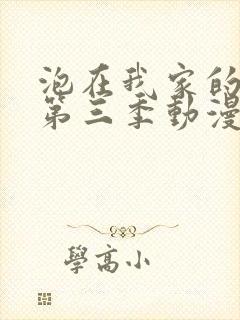 泡在我家的
第三季動漫
學高小